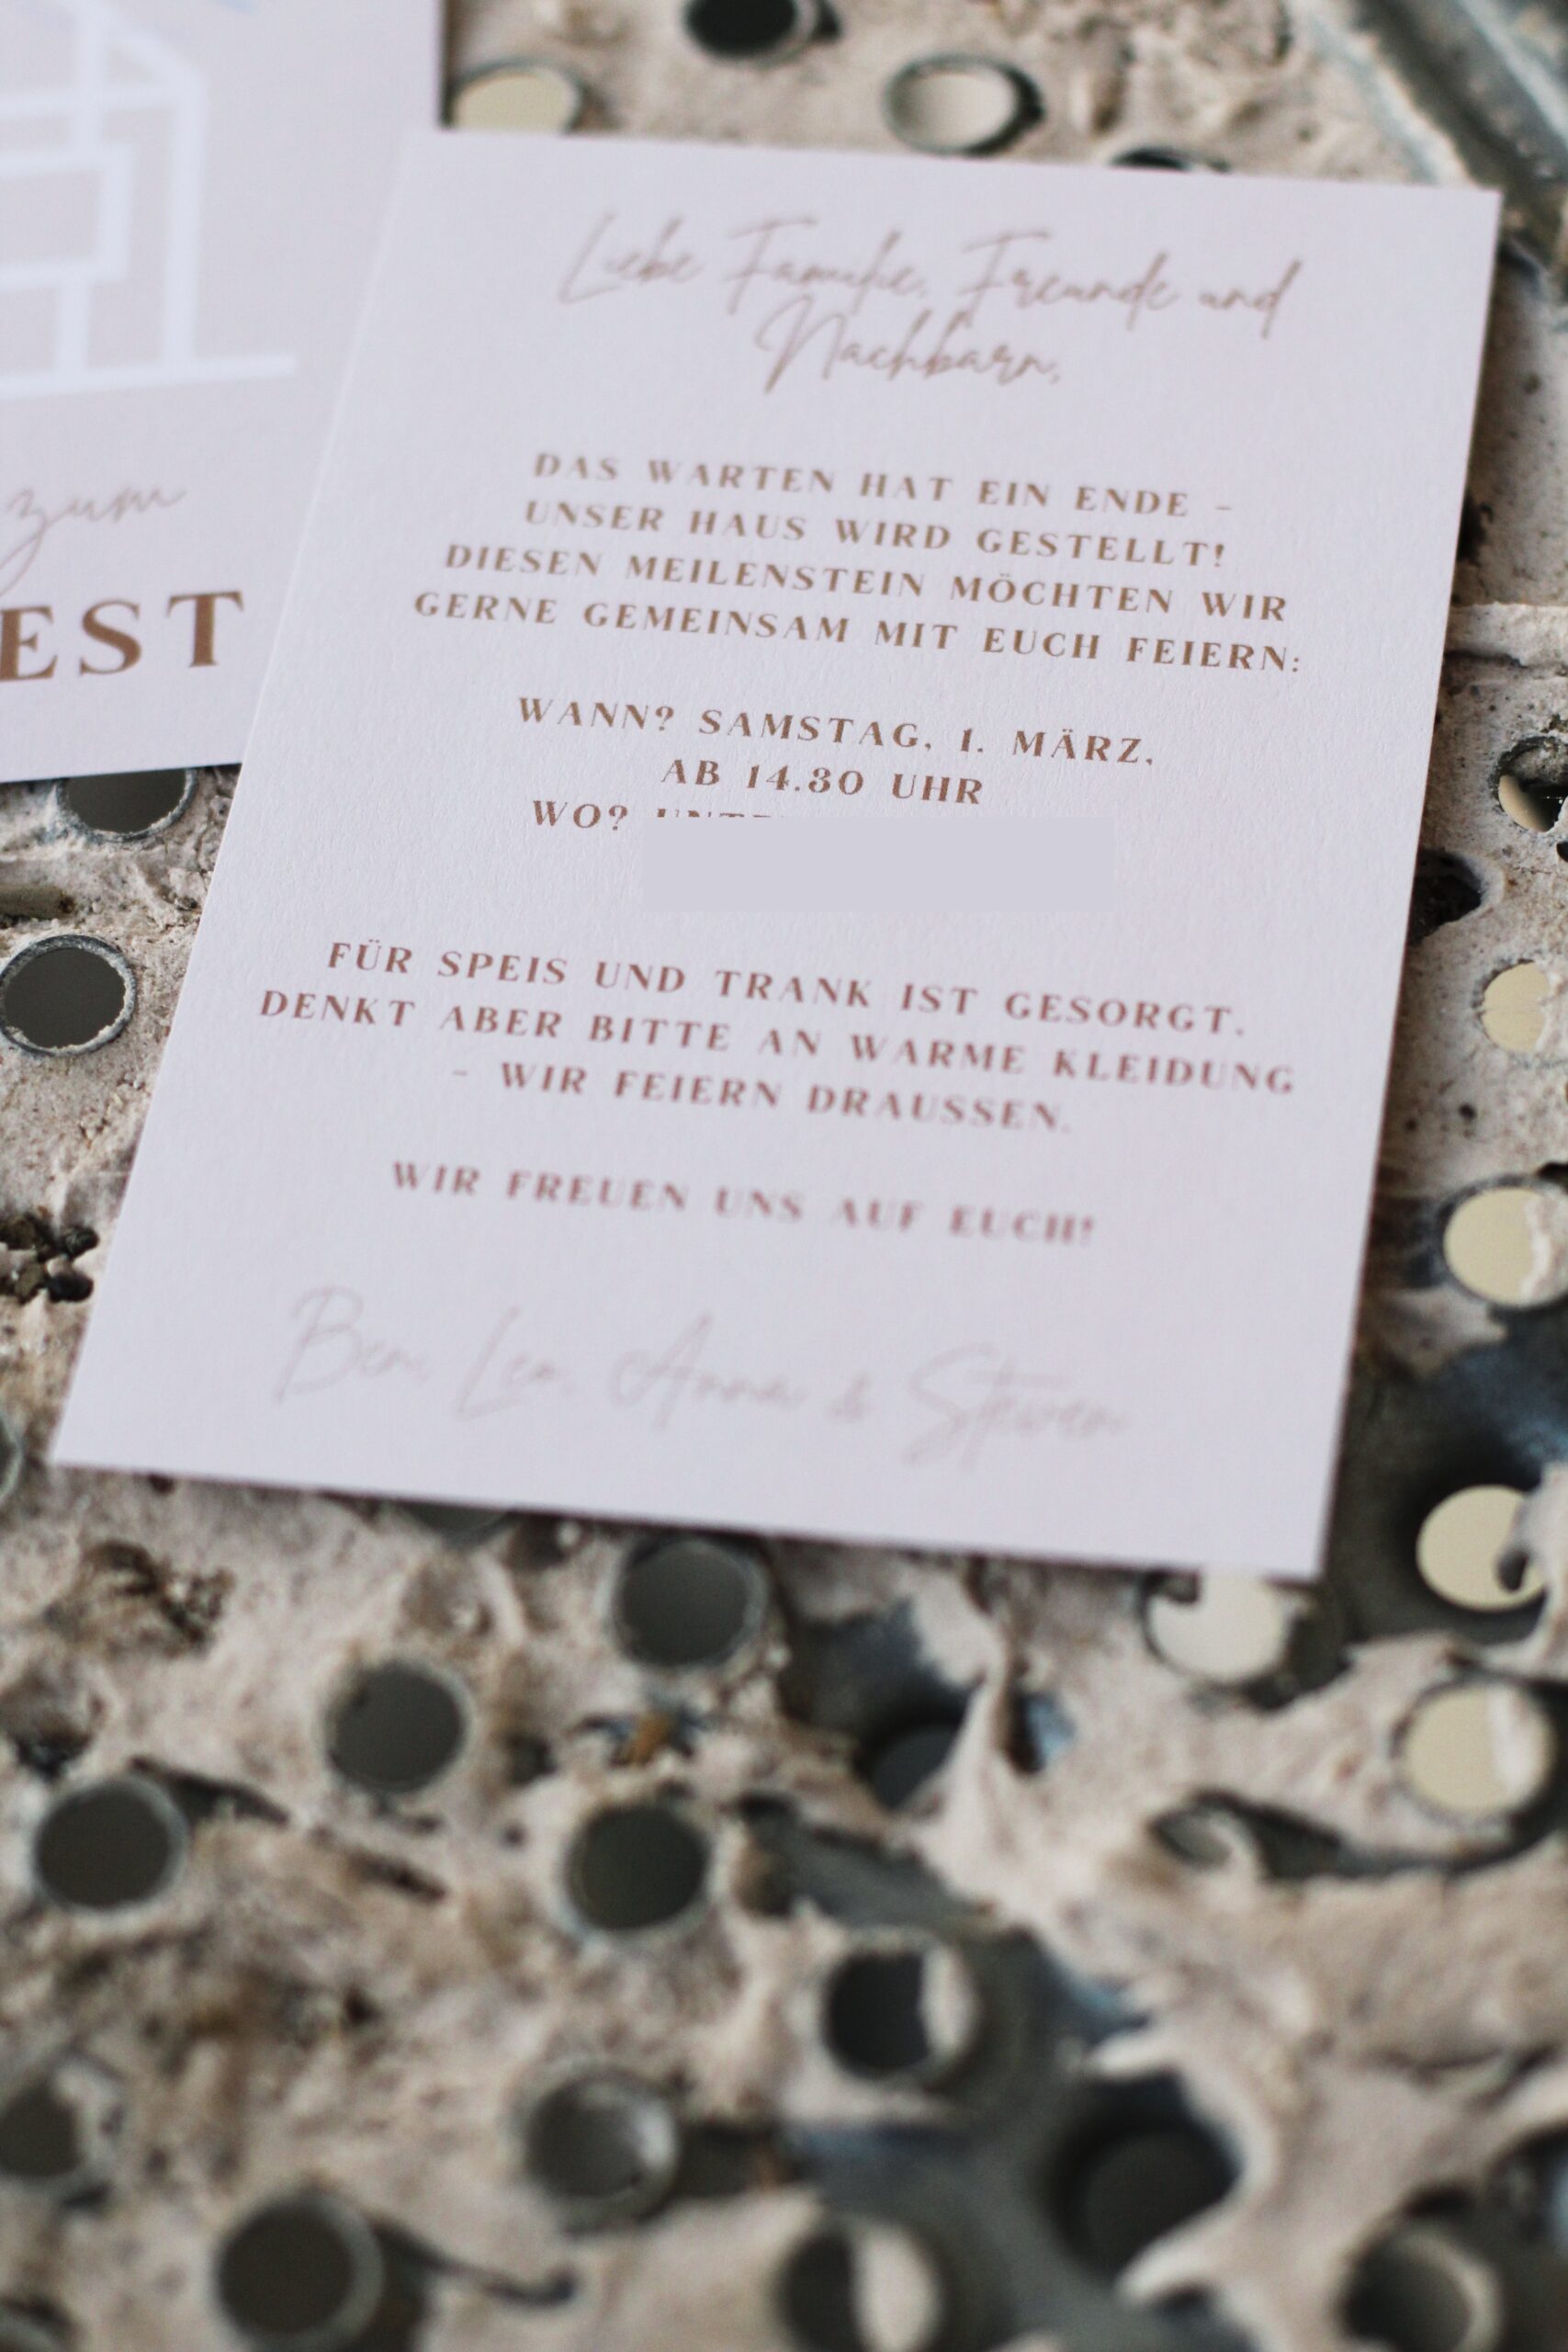 zum
EST
Liebe Familie, Freunde und
Nachbarn,
DAS WARTEN HAT EIN ENDE -
UNSER HAUS WIRD GESTELLT!
DIESEN MEILENSTEIN MÖCHTEN WIR
GERNE GEMEINSAM MIT EUCH FEIERN:
WANN? SAMSTAG, 1. MÄRZ,
AB 14.30 UHR
WO?
FÜR SPEIS UND TRANK IST GESORGT.
DENKT ABER BITTE AN WARME KLEIDUNG
- WIR FEIERN DRAUSSEN.
WIR FREUEN UNS AUF EUCH!
Ben, Lea, Anna & Steven